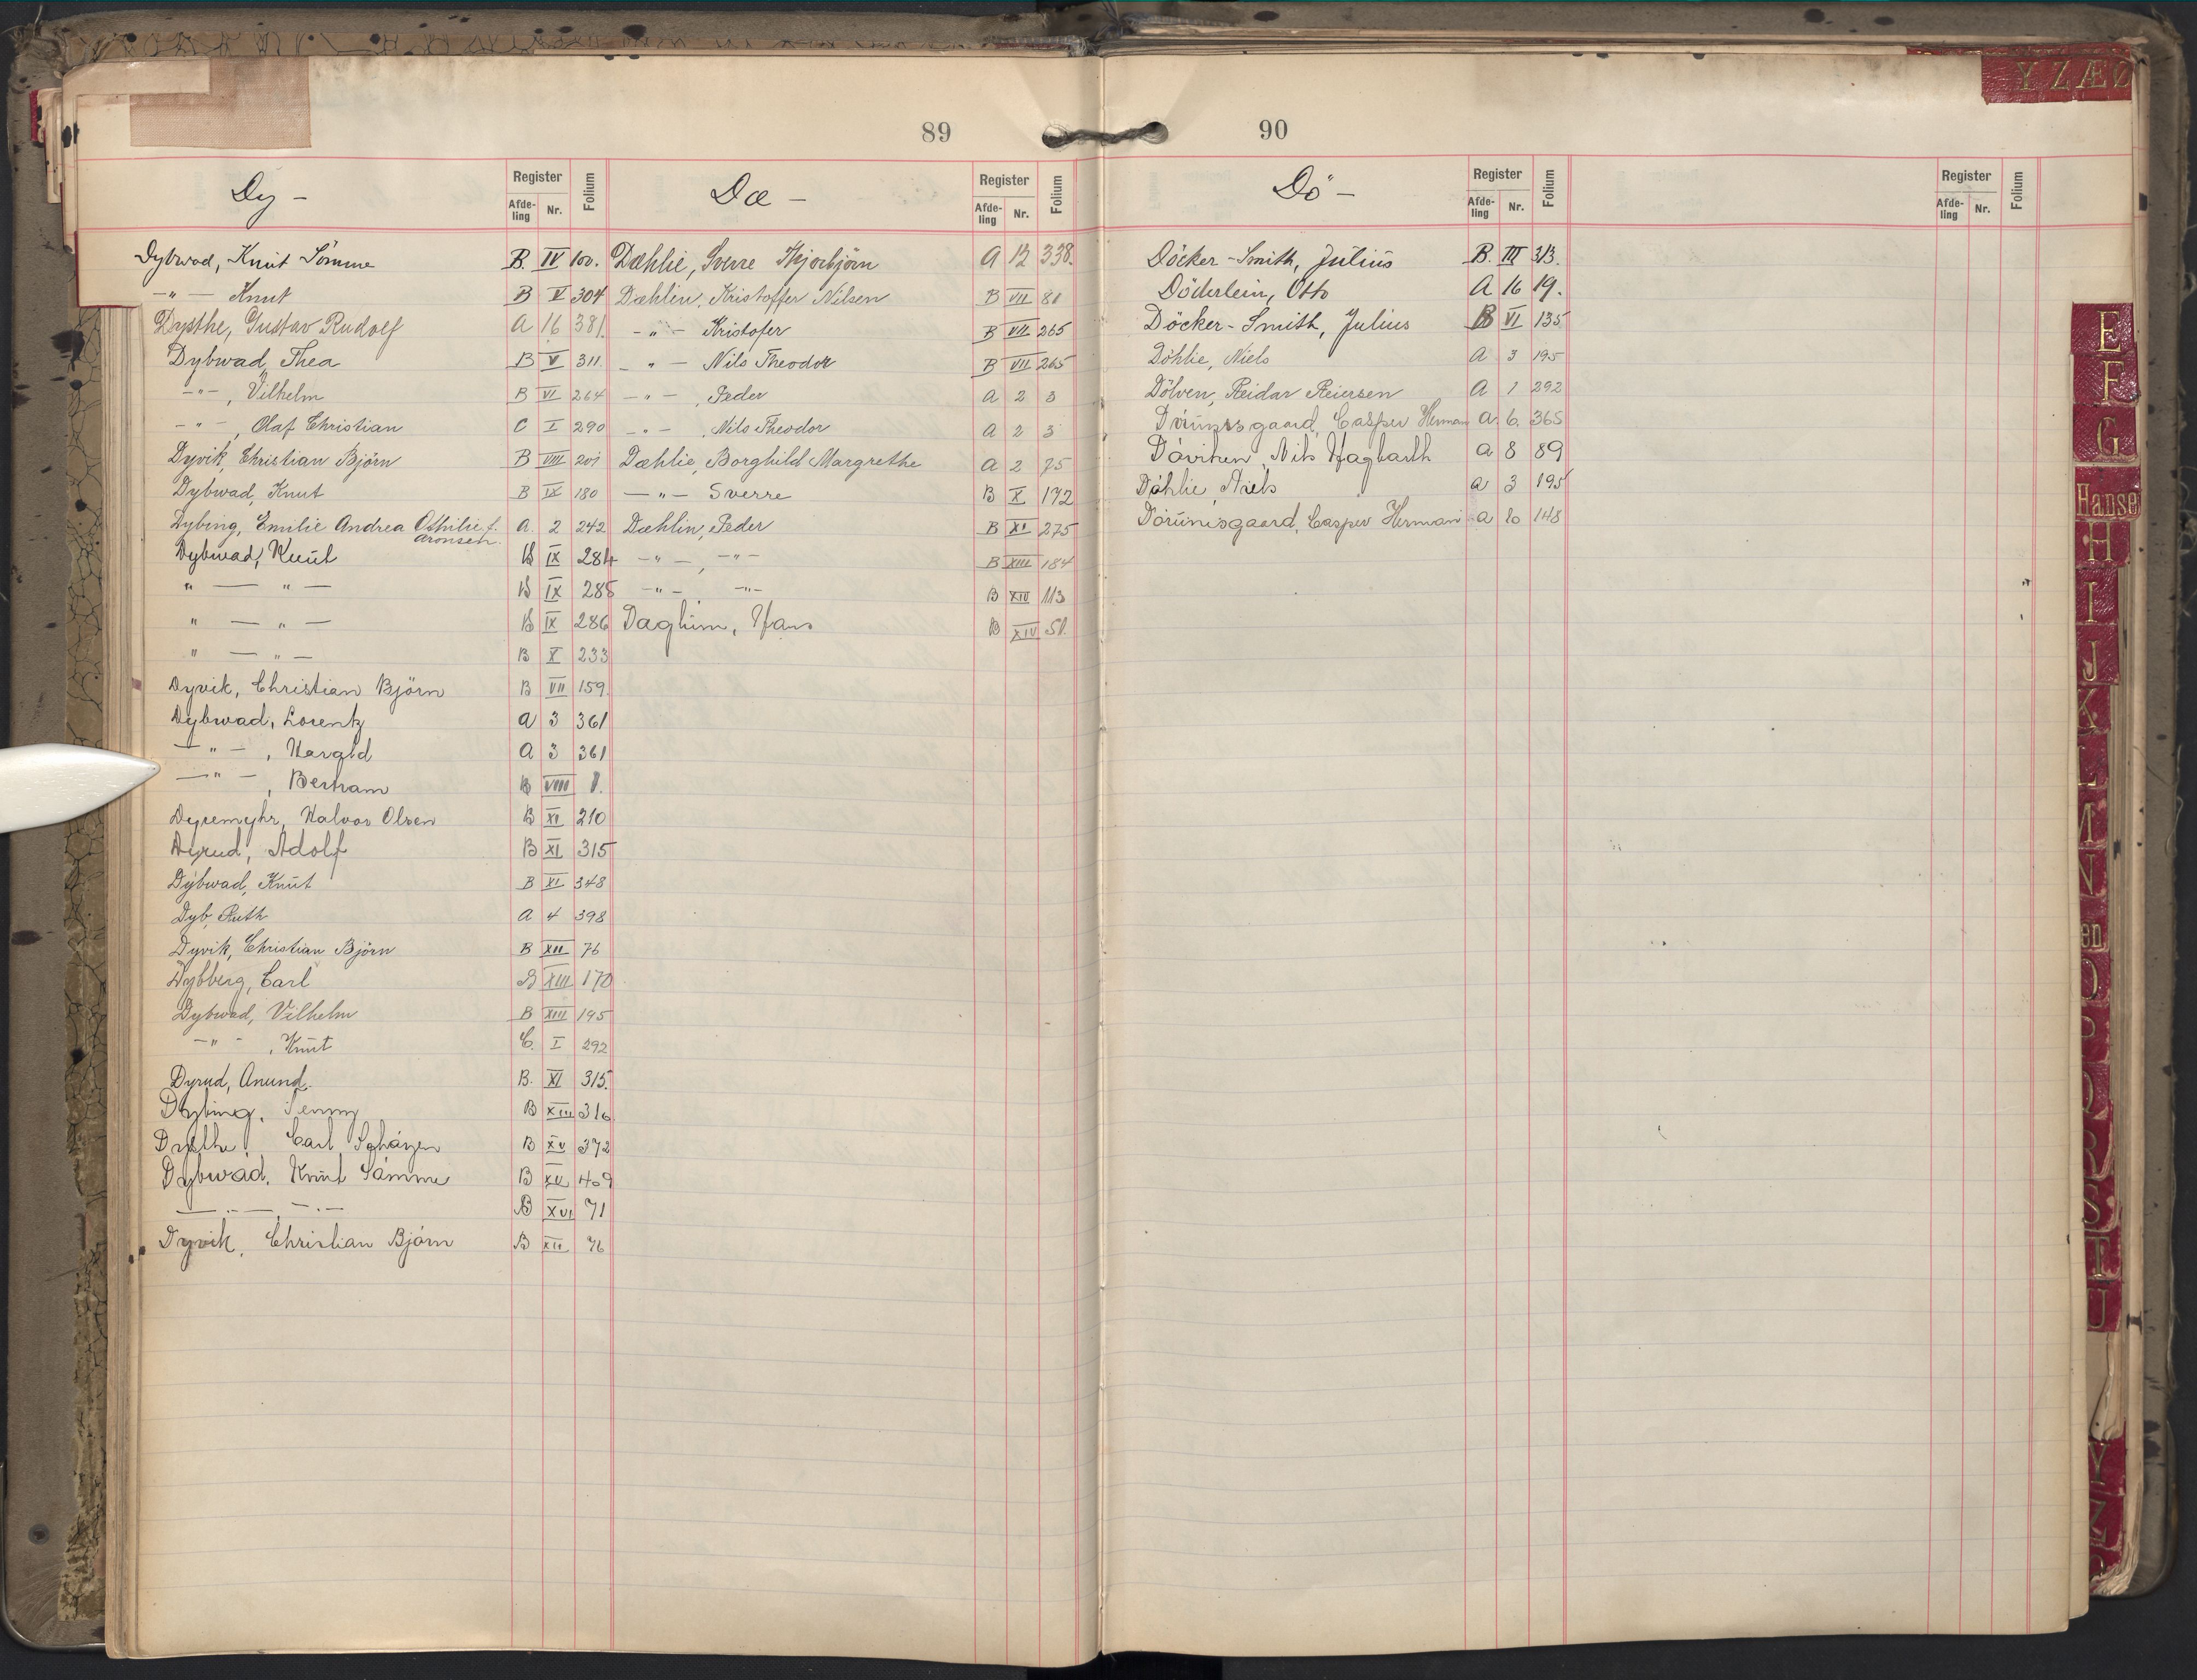 89
Dy - Register Afde-ling Nr. Folium
Dybwad, Knut Sömme B. IV 100.
-"- Knut B V 304
Dysthe, Gustav Rudolf A 16 381.
Dybwad, Thea B V 311.
-"-, Vilhelm B VI 264
-"-, Olaf Christian C I 290
Dyvik, Christian Björn B VIII 201
Dybwad, Knut B IX 180
Dybing, Emilie Andrea Othilie f. A. 2 242
Aronsen.
Dybwad, Knut B IX 284
" — " — B IX 285
" — " — B IX 286
" — " — B X 233
Dyvik, Christian Björn B VII 159.
Dybwad, Lorentz A 3 361
-"-, Harald A 3 361
-"-, Bertram B VIII
Dyremyhr, Halvor Olsen B XI 210
Dyrud, Adolf B XI 315
Dybwad, Knut B XI 348
Dyb, Ruth A 4 398
Dyvik, Christian Björn B XII 76
Dybberg, Carl B XIII 170
Dybwad, Vilhelm B XIII 195
-"-, Knut C. I 292
Dyrud, Anund. B. XI 315.
Dybing, Jenny B XIII 316
Dysthe, Carl B XV 372
Dybwad, Knut Sömme B XV 409
— . — , — . — B XVI 71
Dyvik, Christian Björn B XII 76
Dæ - Register Afde-ling Nr. Folium
Dæhlie, Sverre Thjorbjörn A 12 338.
Dæhlin, Kristoffer Nilsen B VII 81
-"- Kristofer B VII 265
-"- Nils Theodor B VII 265
-"-, Peder A 2 3
-"-, Nils Theodor A 2 3
Dæhlie, Borghild Margrethe A 2 75
-"- Sverre B X 172
Dæhlin, Peder B XI 275
-"-, -"- B XIII 184
-"-, -"- B XIV 113
Daglum, Hans B XIV 51.
90
Dö - Register Afde-ling Nr. Folium
Döcker-Smith, Julius B. III 313.
Döderlein, Otto A 16 19.
Döcker-Smith, Julius B VI 135
Döhlie, Niels A 3 195
Dölven, Reidar Reiersen A 1 292
Casper Herman A. 6. 365
Döviken, Nils Hagbarth A 8 89
Döhlie, Niels A 3 195
Dörumsgaard, Casper Herman A 10 148
Register Afde-ling Nr. Folium
Y Z Æ Ø
E
F
G
Hanse
H
I
J
K
L
M
N
en
O
P
Q
R
S
T
U
Y
Z